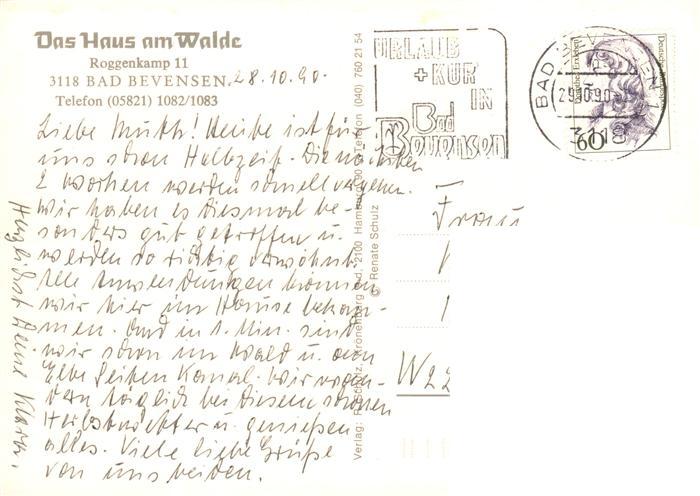 Das Haus am Walde
Roggenkamp 11
3118 BAD BEVENSEN
Telefon (05821) 1082/1083
28.10.90.
Liebe Mutti! Heute ist für
uns schon Halbzeit. Die nächsten
2 Wochen werden schnell vergehen.
Wir haben es diesmal be-
sonders gut getroffen u.
werden so richtig verwöhnt.
Alle Anwendungen können
wir hier im Hause bekom-
men. Und in 1. Min. sind
wir schon im Wald u. am
Elbe Seiten Kanal. Wir wan-
dern täglich bei diesem schönen
Herbstwetter u. genießen
alles. Viele liebe Grüße
von uns beiden.
Herzlichst Deine Klara.
Verlag: R. Schulz, Kronenberg, 2100 Hamburg 90, Telefon (040) 760 21 54
© Renate Schulz
URLAUB
+ KUR
IN
Bad
Bevensen
BAD BEVENSEN 1
29.10.90
3118
Deutsche Bundespost
60
Frau
W22